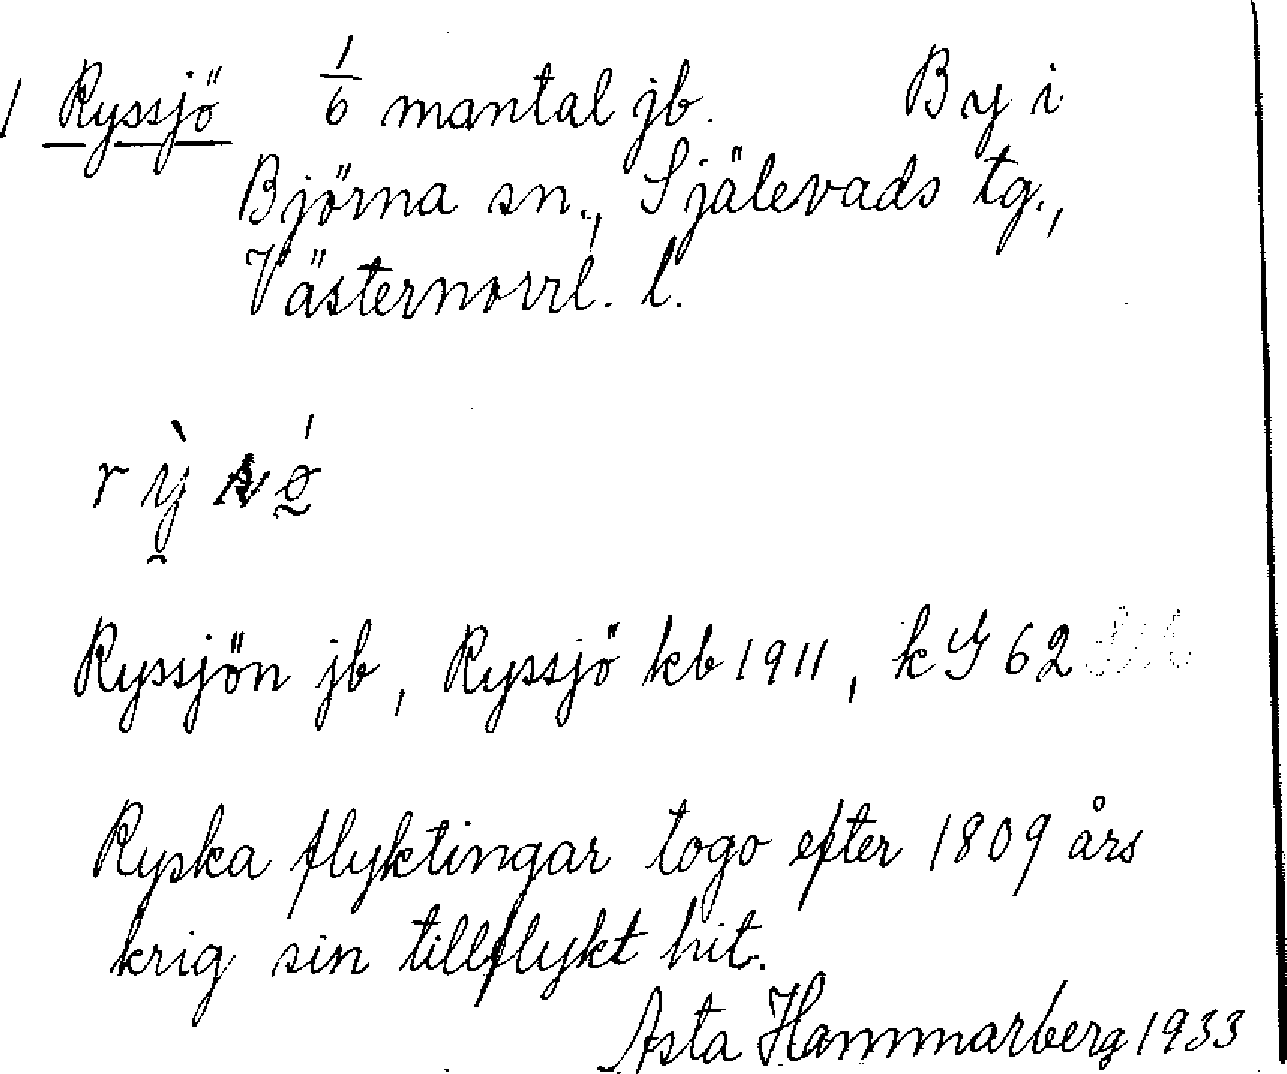 1 Ryssjö 1/6 mantal jb. By i
Björna sn., Själevads tg.,
Västernorrl. l.
Ryssjön jb, Ryssjö kb 1911, kG 62
Ryska flyktingar togo efter 1809 års
krig sin tillflykt hit.
Asta Hammarberg 1933